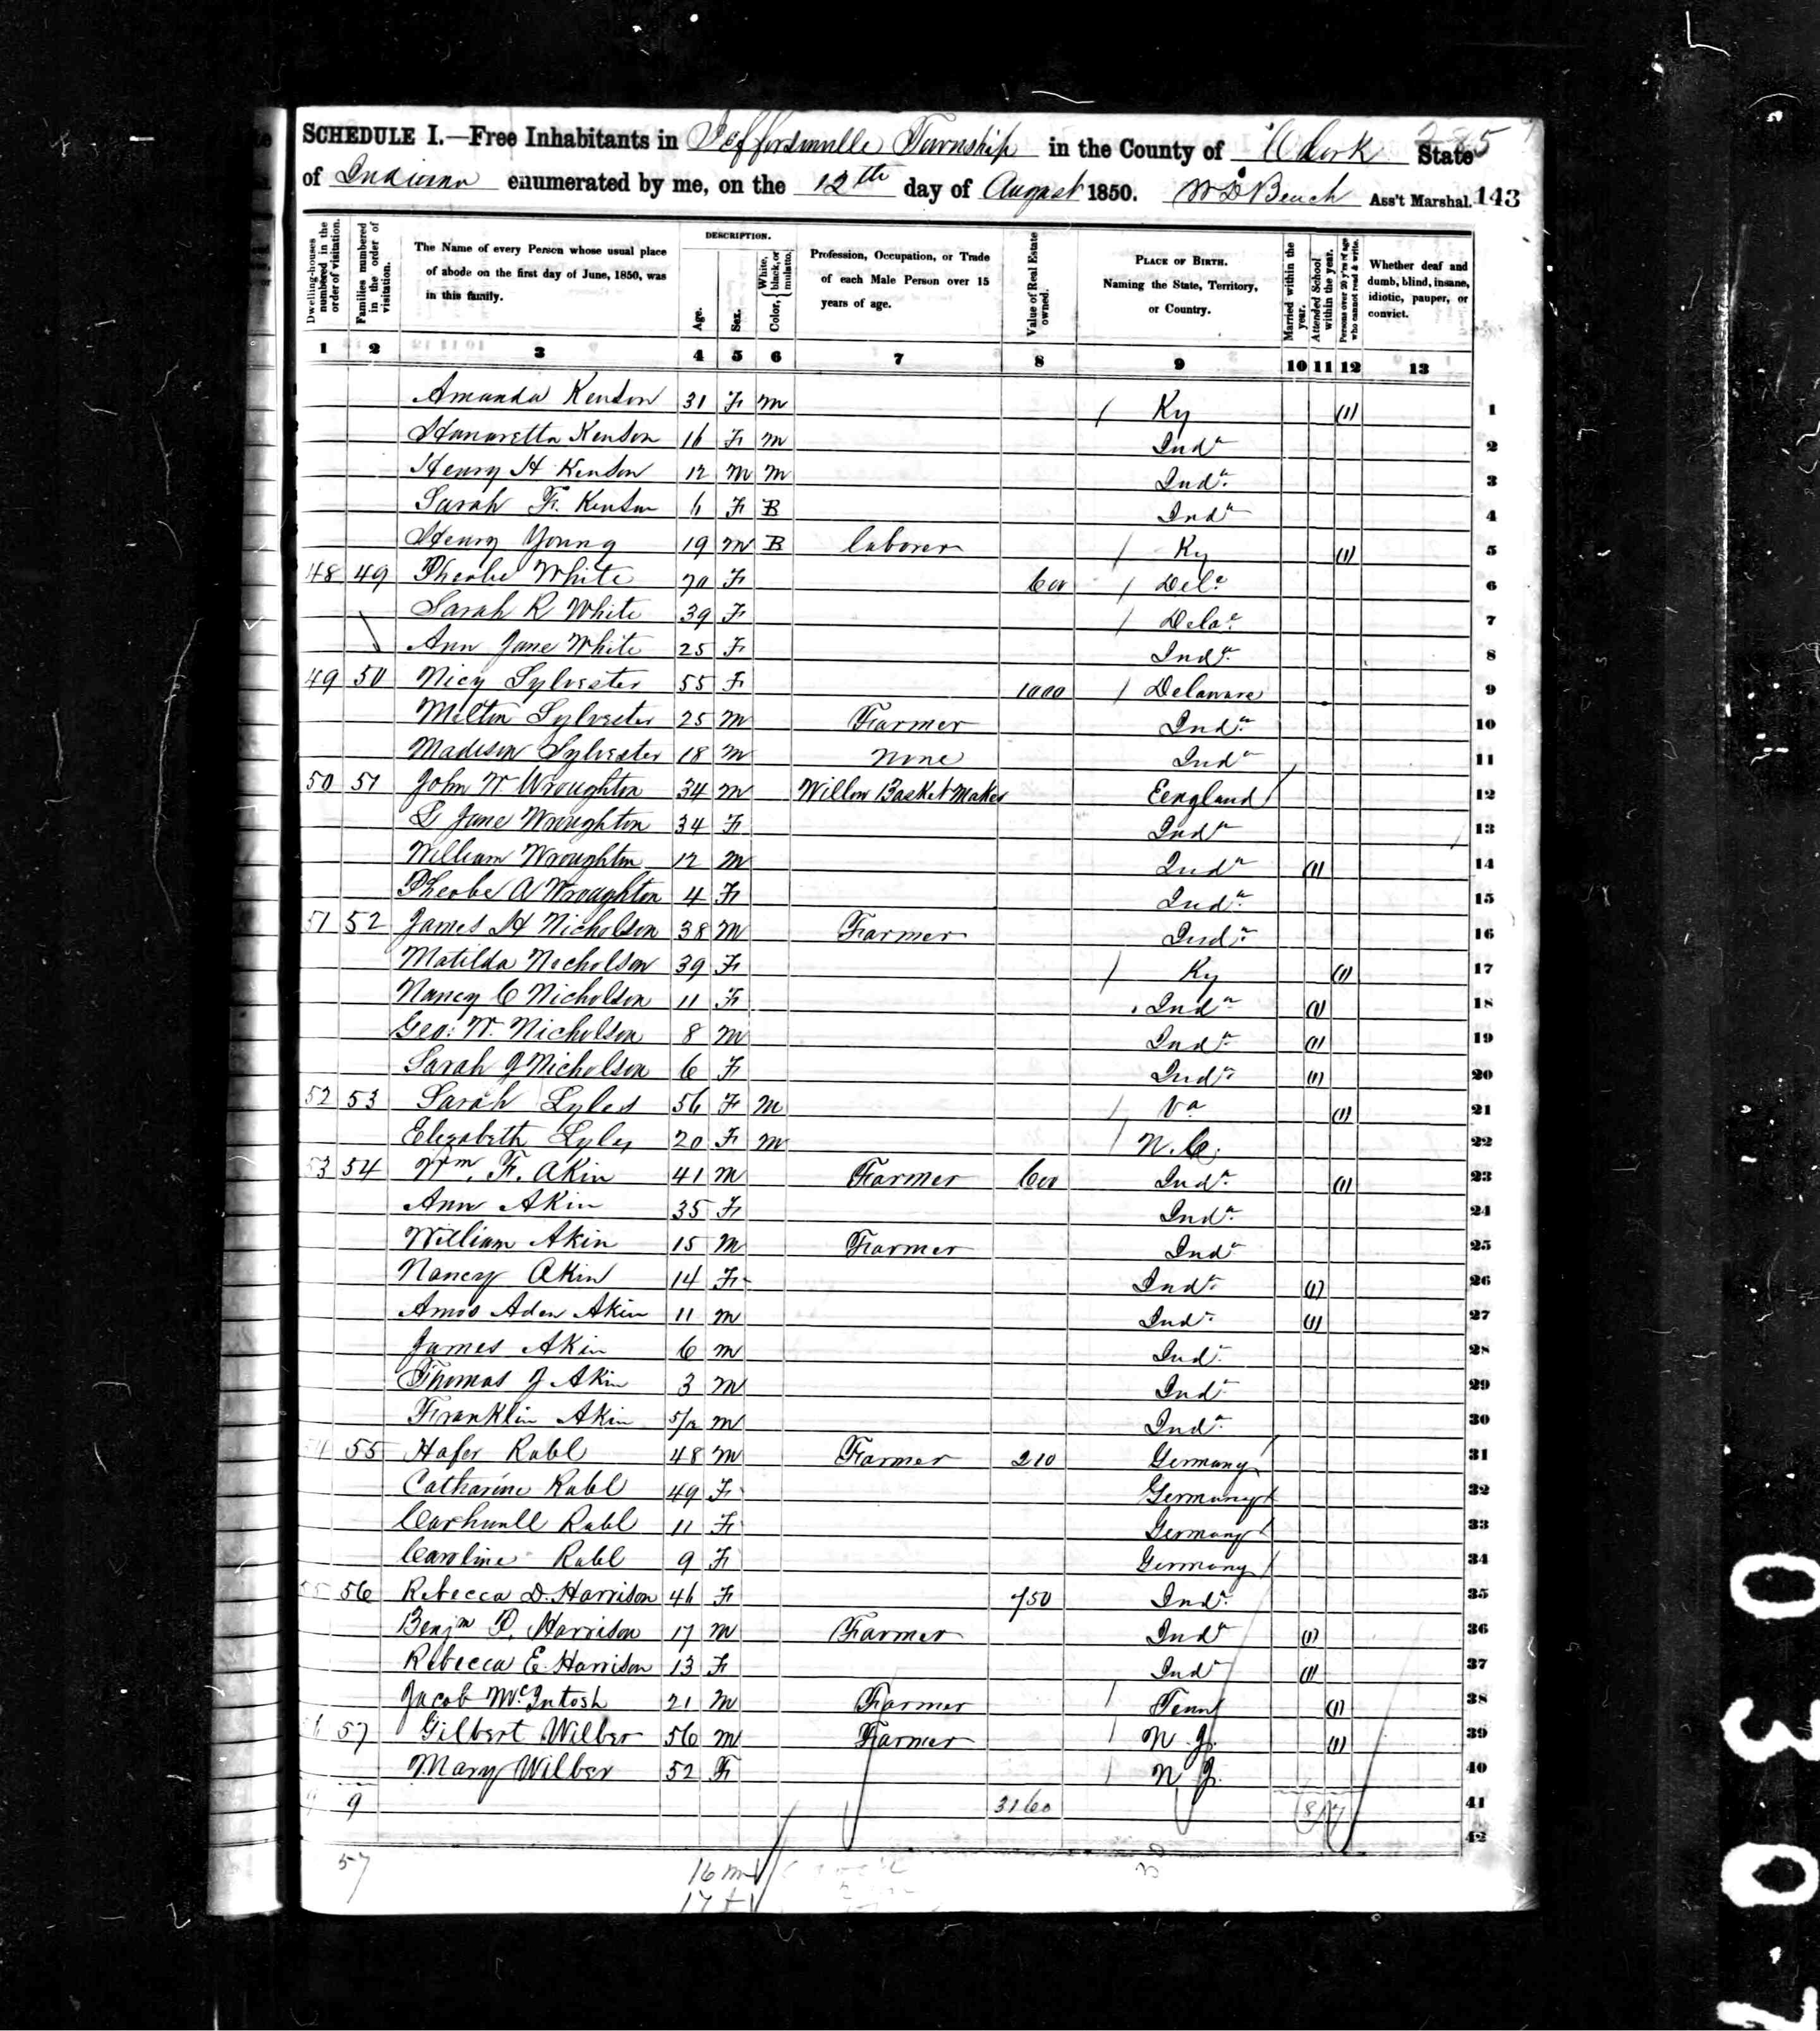 SCHEDULE I.—Free Inhabitants in Jeffersonville Township in the County of Clark State
of Indiana enumerated by me, on the 12th day of August 1850. W D Beach Ass't Marshal. 143
Dwelling-houses numbered in the order of visitation.
Families numbered in the order of visitation.
The Name of every Person whose usual place of abode on the first day of June, 1850, was in this family.
DESCRIPTION.
Age.
Sex.
Color, { White, black, or mulatto.
Profession, Occupation, or Trade of each Male Person over 15 years of age.
Value of Real Estate owned.
PLACE OF BIRTH. Naming the State, Territory, or Country.
Married within the year.
Attended School within the year.
Persons over 20 y'rs of age who cannot read & write.
Whether deaf and dumb, blind, insane, idiotic, pauper, or convict.
1 2 3 4 5 6 7 8 9 10 11 12 13
Amanda Kenton 31 F M / Ky (1) 1
Hanaretta Kenton 16 F M Inda 2
Henry H Kenton 12 M M Inda 3
Sarah F. Kenton 6 F B Inda 4
Henry Young 19 M B laborer / Ky (1) 5
48 49 Pheobe White 70 F 600 / Dela 6
Sarah R White 39 F / Dela 7
Ann Jane White 25 F Inda 8
49 50 Nicy Sylvester 55 F 1000 / Delaware 9
Milton Sylvester 25 M Farmer Inda 10
Madison Sylvester 18 M None Inda 11
50 51 John W Wroughton 34 M Willow Basket Maker Eengland / 12
L Jane Wroughton 34 F Inda 13
William Wroughton 12 M Inda (1) 14
Pheobe A Wroughton 4 F Inda 15
51 52 James H Nicholson 38 M Farmer Inda 16
Matilda Nicholson 39 F / Ky (1) 17
Nancy C Nicholson 11 F Inda (1) 18
Geo: W. Nicholson 8 M Inda (1) 19
Sarah J Nicholson 6 F Inda (1) 20
52 53 Sarah Lyles 56 F M / Va (1) 21
Elizabeth Lyles 20 F M / N. C. 22
53 54 Wm. F. Akin 41 M Farmer 600 Inda (1) 23
Ann Akin 35 F Inda 24
William Akin 15 M Farmer Inda 25
Nancy Akin 14 F Inda (1) 26
Amos Aden Akin 11 M Inda (1) 27
James Akin 6 M Inda 28
Thomas J Akin 3 M Inda 29
Franklin Akin 5/12 M Inda 30
54 55 Hafer Rabl 48 M Farmer 210 Germany / 31
Catharine Rabl 49 F Germany / 32
Rabl 11 F Germany / 33
Caroline Rabl 9 F Germany / 34
55 56 Rebecca D. Harrison 46 F 750 Inda 35
Benjm P. Harrison 17 M Farmer Inda (1) 36
Rebecca E. Harrison 13 F Inda (1) 37
Jacob McIntosh 21 M Farmer / Tenn (1) 38
56 57 Gilbert Wilber 56 M Farmer / N. J. (1) 39
Mary Wilber 52 F / N J. 40
9 9 3160 8 7 41
42
57
16 m
17 f
0307